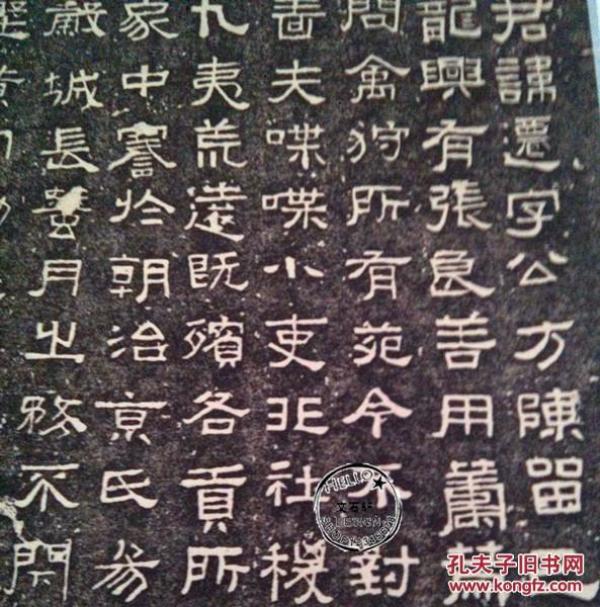 君諱遷字公方陳留
龍興有張良善用籌
問禽狩所有苑令不對
嗇夫喋喋小吏非社稷
九夷荒遠既殯各貢所
家中謇於朝治京氏易
穀城長蠶月之務不閉
HELLO
孔夫子旧书网
www.kongfz.com